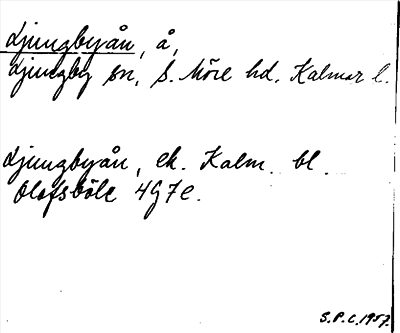 Ljungbyån, å,
Ljungby sn, S. Möre hd, Kalmar l.
Ljungbyån, ek. Kalm. bl.
Olofsböle 4G7e.
S.P.C. 1957.